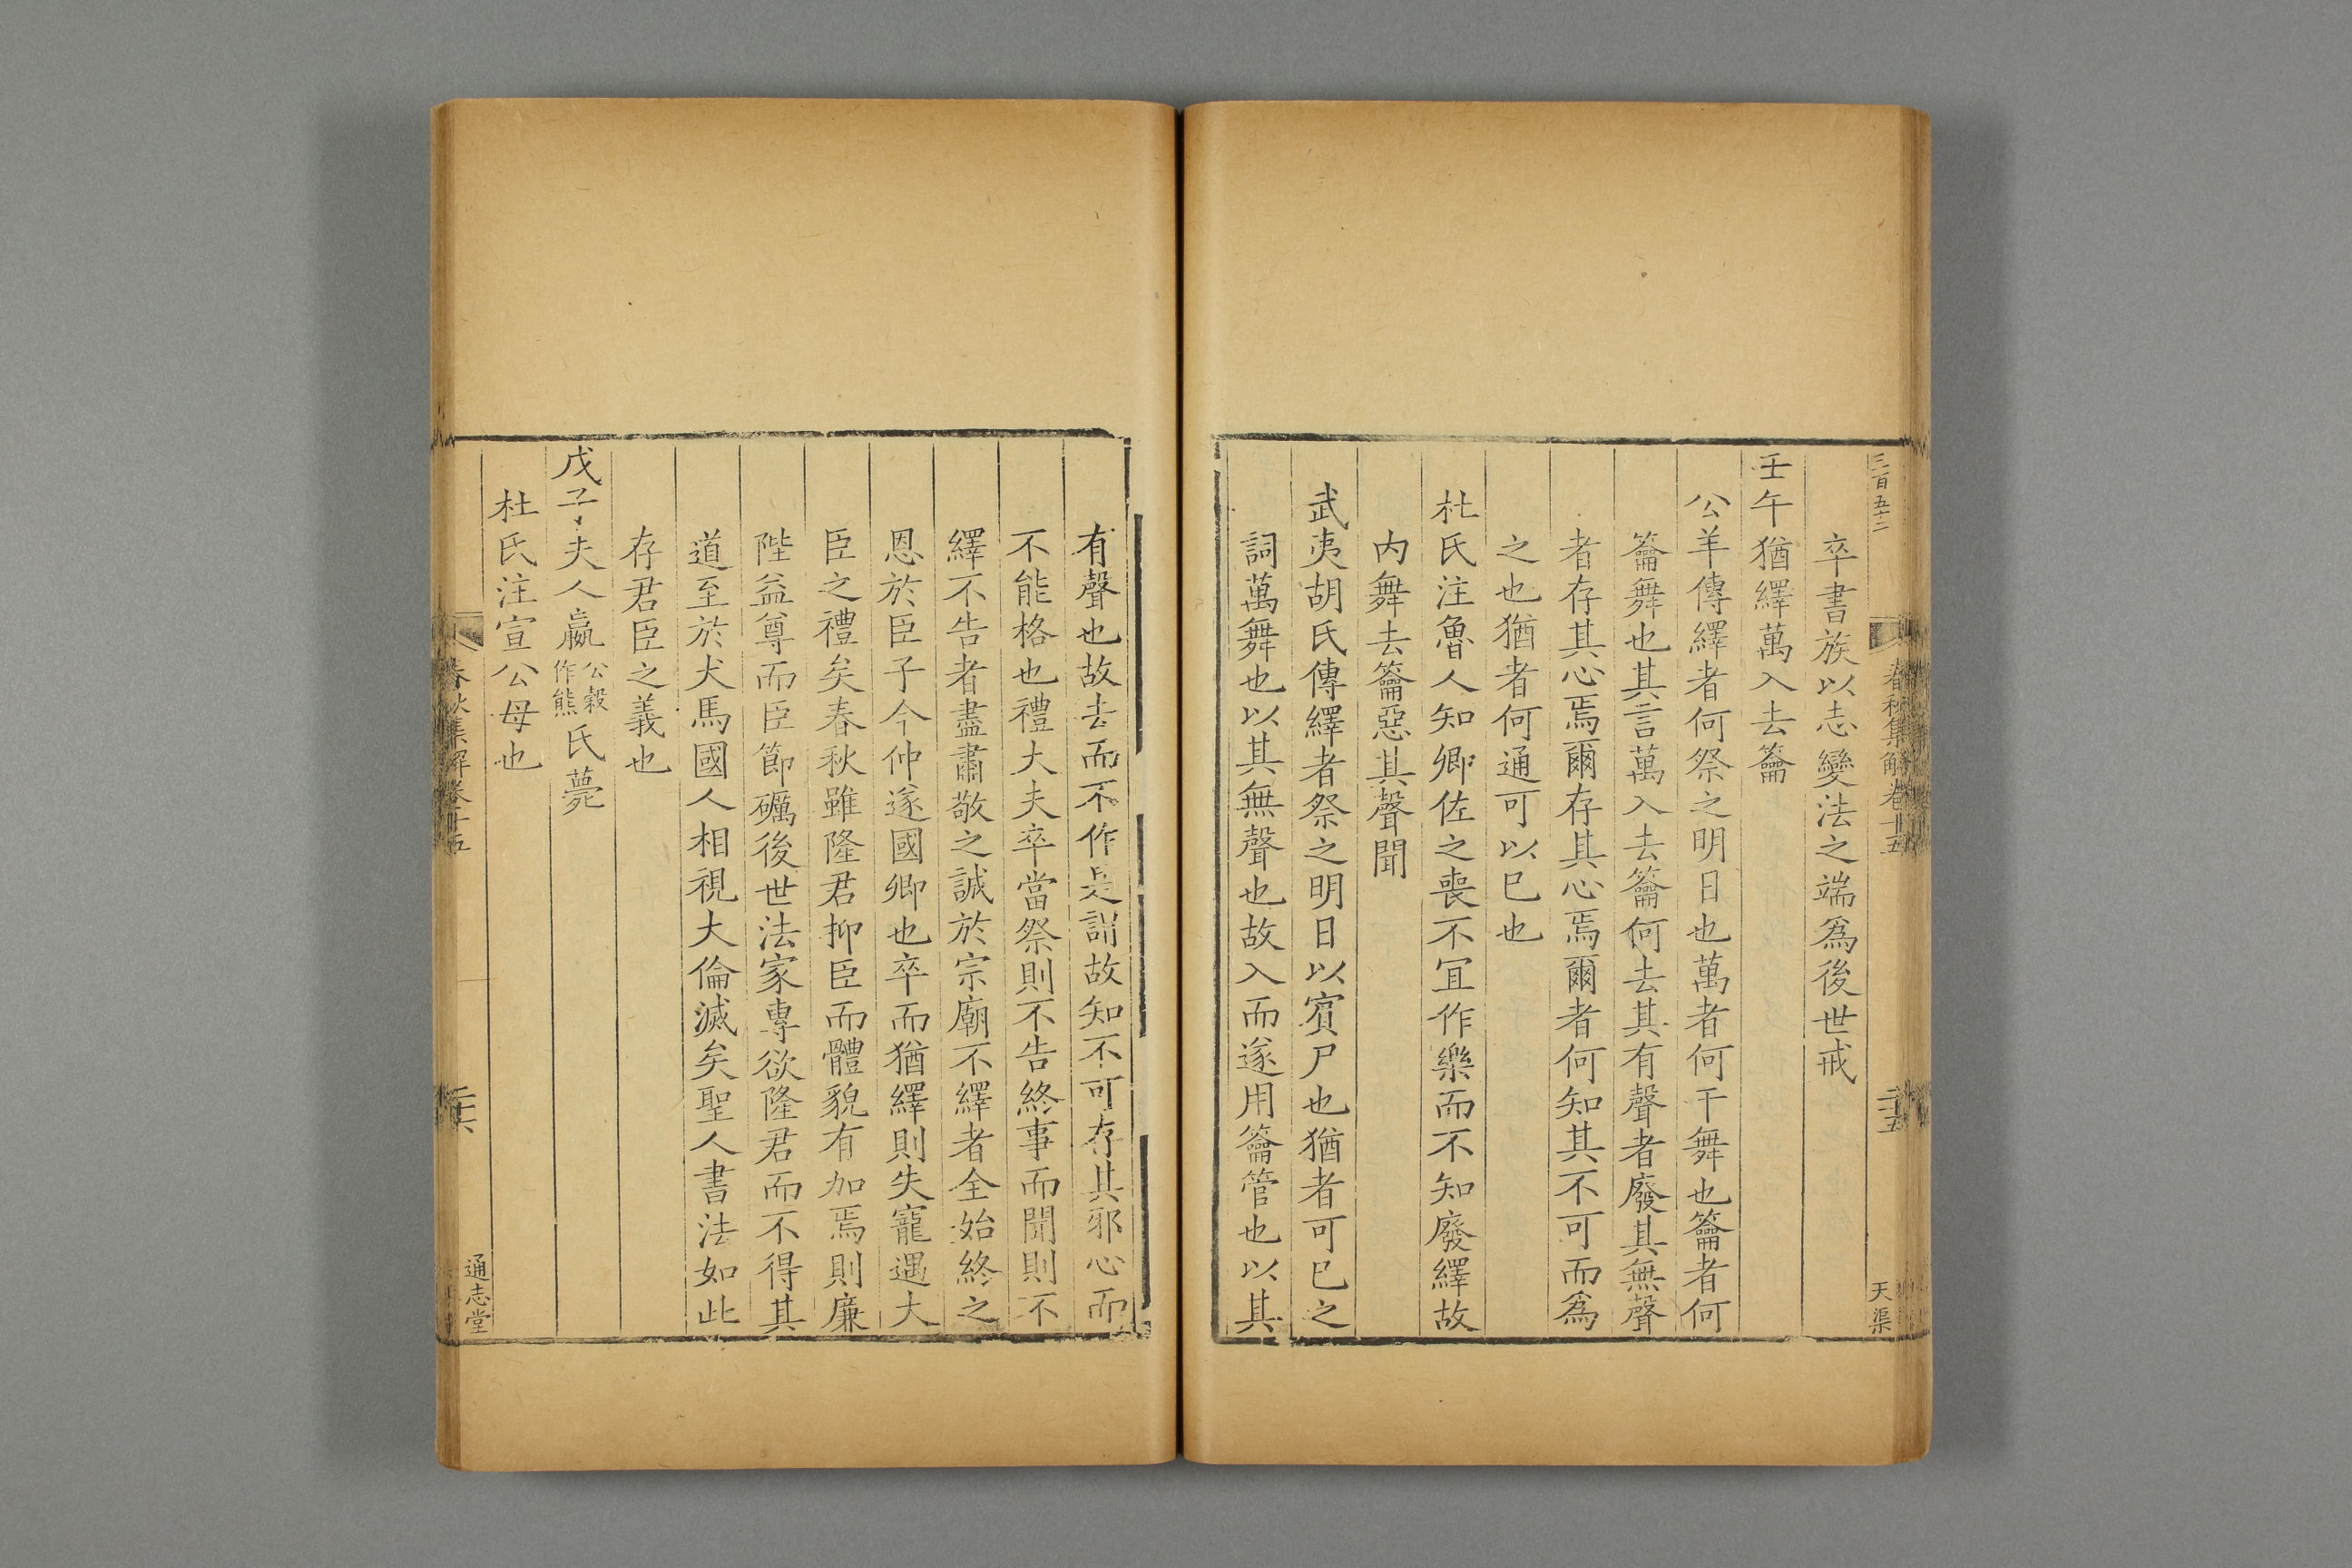 三百五十二
春秋集解卷十五
二十五
天渠
卒書族以志變法之端爲後世戒
壬午猶繹萬入去籥
公羊傳繹者何祭之明日也萬者何干舞也籥者何
籥舞也其言萬入去籥何去其有聲者廢其無聲
者存其心焉爾存其心焉爾者何知其不可而爲
之也猶者何通可以已也
杜氏注魯人知卿佐之喪不宜作樂而不知廢繹故
内舞去籥惡其聲聞
武夷胡氏傳繹者祭之明日以賓尸也猶者可已之
詞萬舞也以其無聲也故入而遂用籥管也以其
有聲也故去而不作是謂故知不可存其邪心而
不能格也禮大夫卒當祭則不告終事而聞則不
繹不告者盡肅敬之誠於宗廟不繹者全始終之
恩於臣子今仲遂國卿也卒而猶繹則失寵遇大
臣之禮矣春秋雖隆君抑臣而體貌有加焉則廉
陛益尊而臣節礪後世法家專欲隆君而不得其
道至於犬馬國人相視大倫滅矣聖人書法如此
存君臣之義也
戊子夫人嬴公穀作熊氏薨
杜氏注宣公母也
春秋集解卷十五
二十六
通志堂